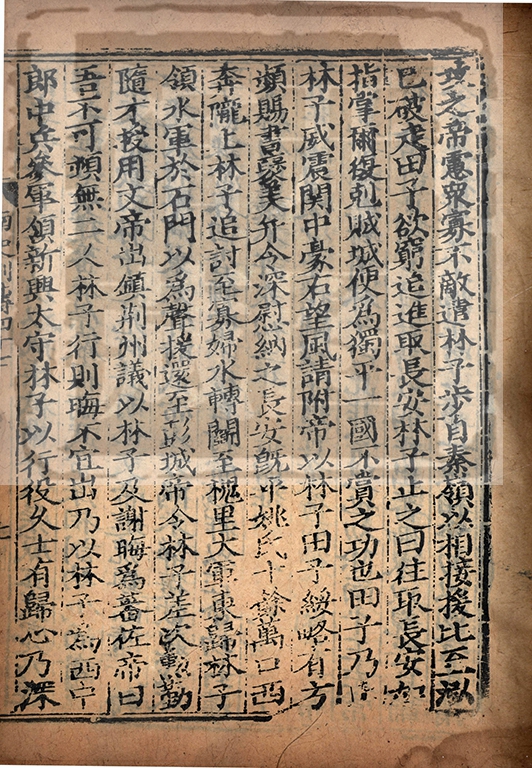 攻之帝慮衆寡不敵遣林子步自秦嶺以相接援比至泓
已破走田子欲窮追進取長安林子止之曰往取長安如
指掌爾復剋賊城便為獨平一國不賞之功也田子乃止
林子威震関中豪右望風請附帝以林子田子綏略有方
頻賜書襃美并令深慰納之長安旣平姚氏十餘萬口西
奔隴上林子追討至寡婦水轉鬭至槐里大軍東歸林子
領水軍於石門以為聲援還至彭城帝令林子差次勲勤
隨才授用文帝出鎮荆州議以林子及謝晦爲蕃佐帝曰
吾不可頓無二人林子行則晦不宜出乃以林子為西中
郎中兵參軍領新興太守林子以行役久士有歸心乃深